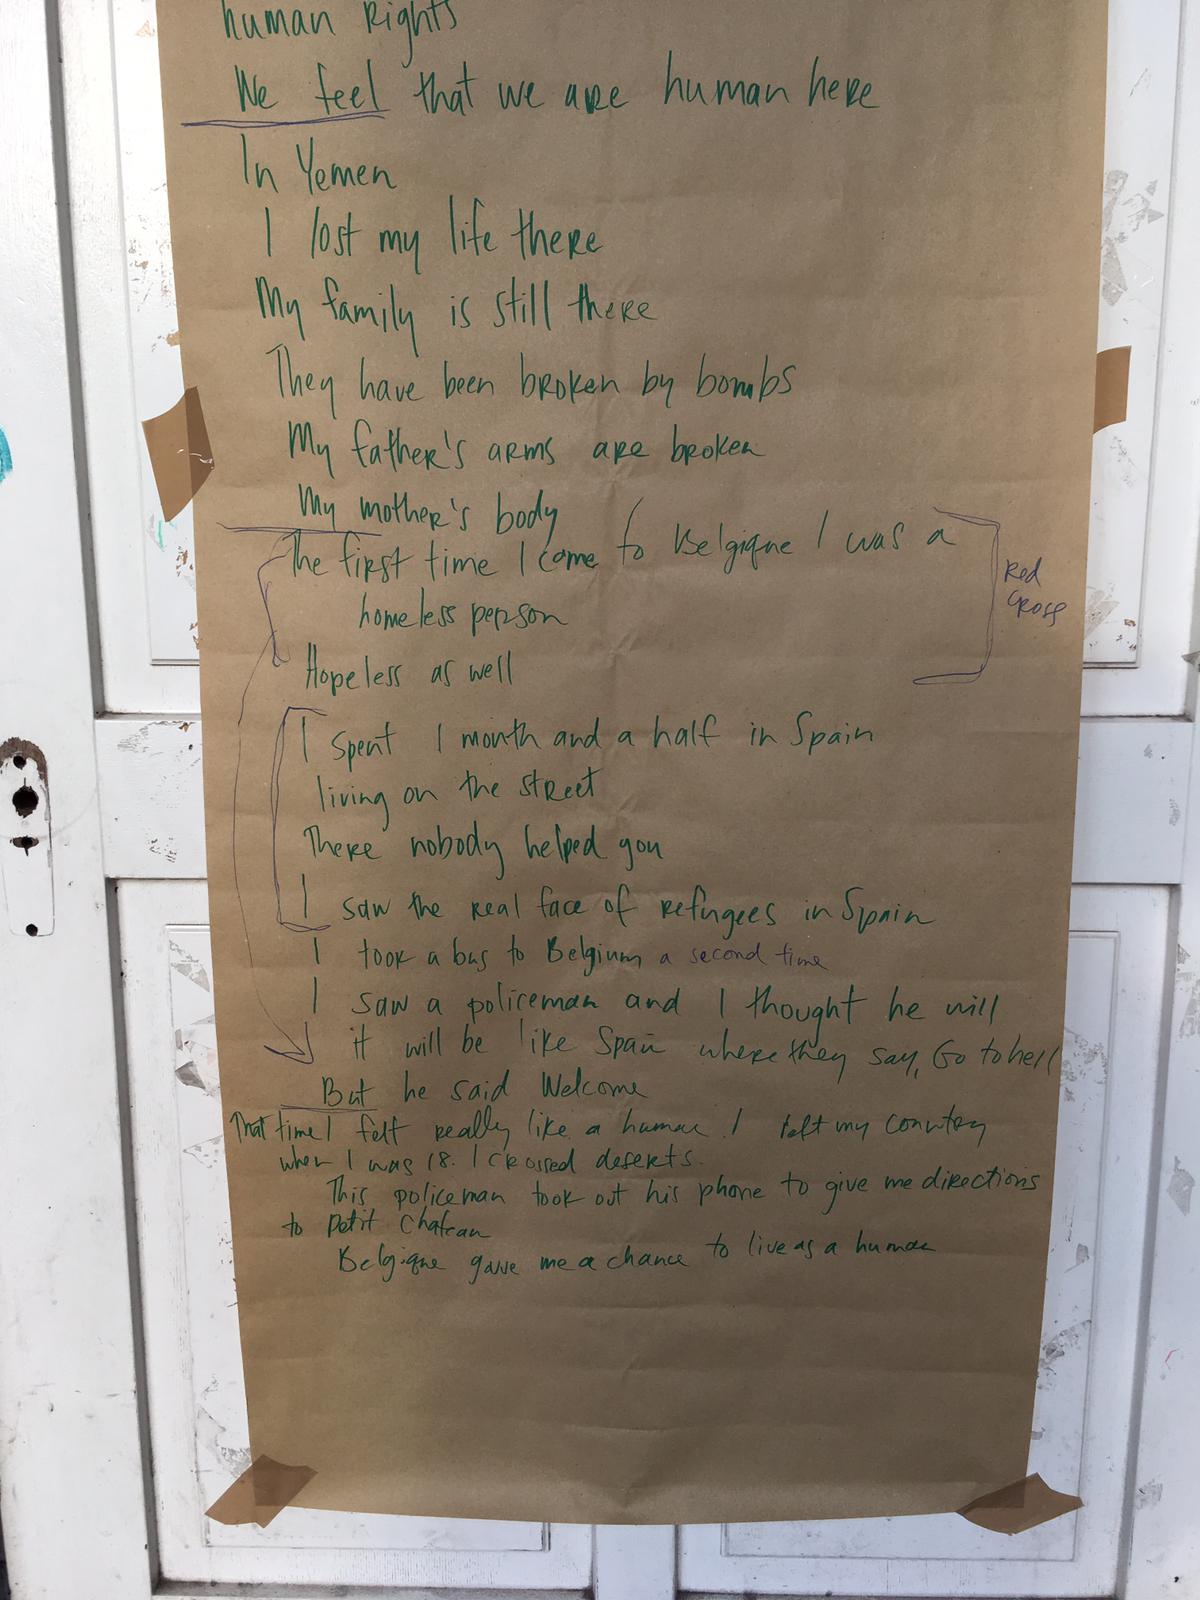 human Rights
We feel that we are human here
In Yemen
I lost my life there
My family is still there
They have been broken by bombs
My father's arms are broken
My mother's body
The first time I came to Belgique I was a
homeless person
Hopeless as well
Red
Cross
I spent 1 month and a half in Spain
living on the street
There nobody helped you
I saw the real face of refugees in Spain
I took a bus to Belgium a second time
I saw a policeman and I thought he will
it will be like Spain where they say, Go to hell
But he said Welcome
That time I felt really like a human. I left my country
when I was 18. I crossed deserts.
This policeman took out his phone to give me directions
to Petit Chateau
Belgique gave me a chance to live as a human